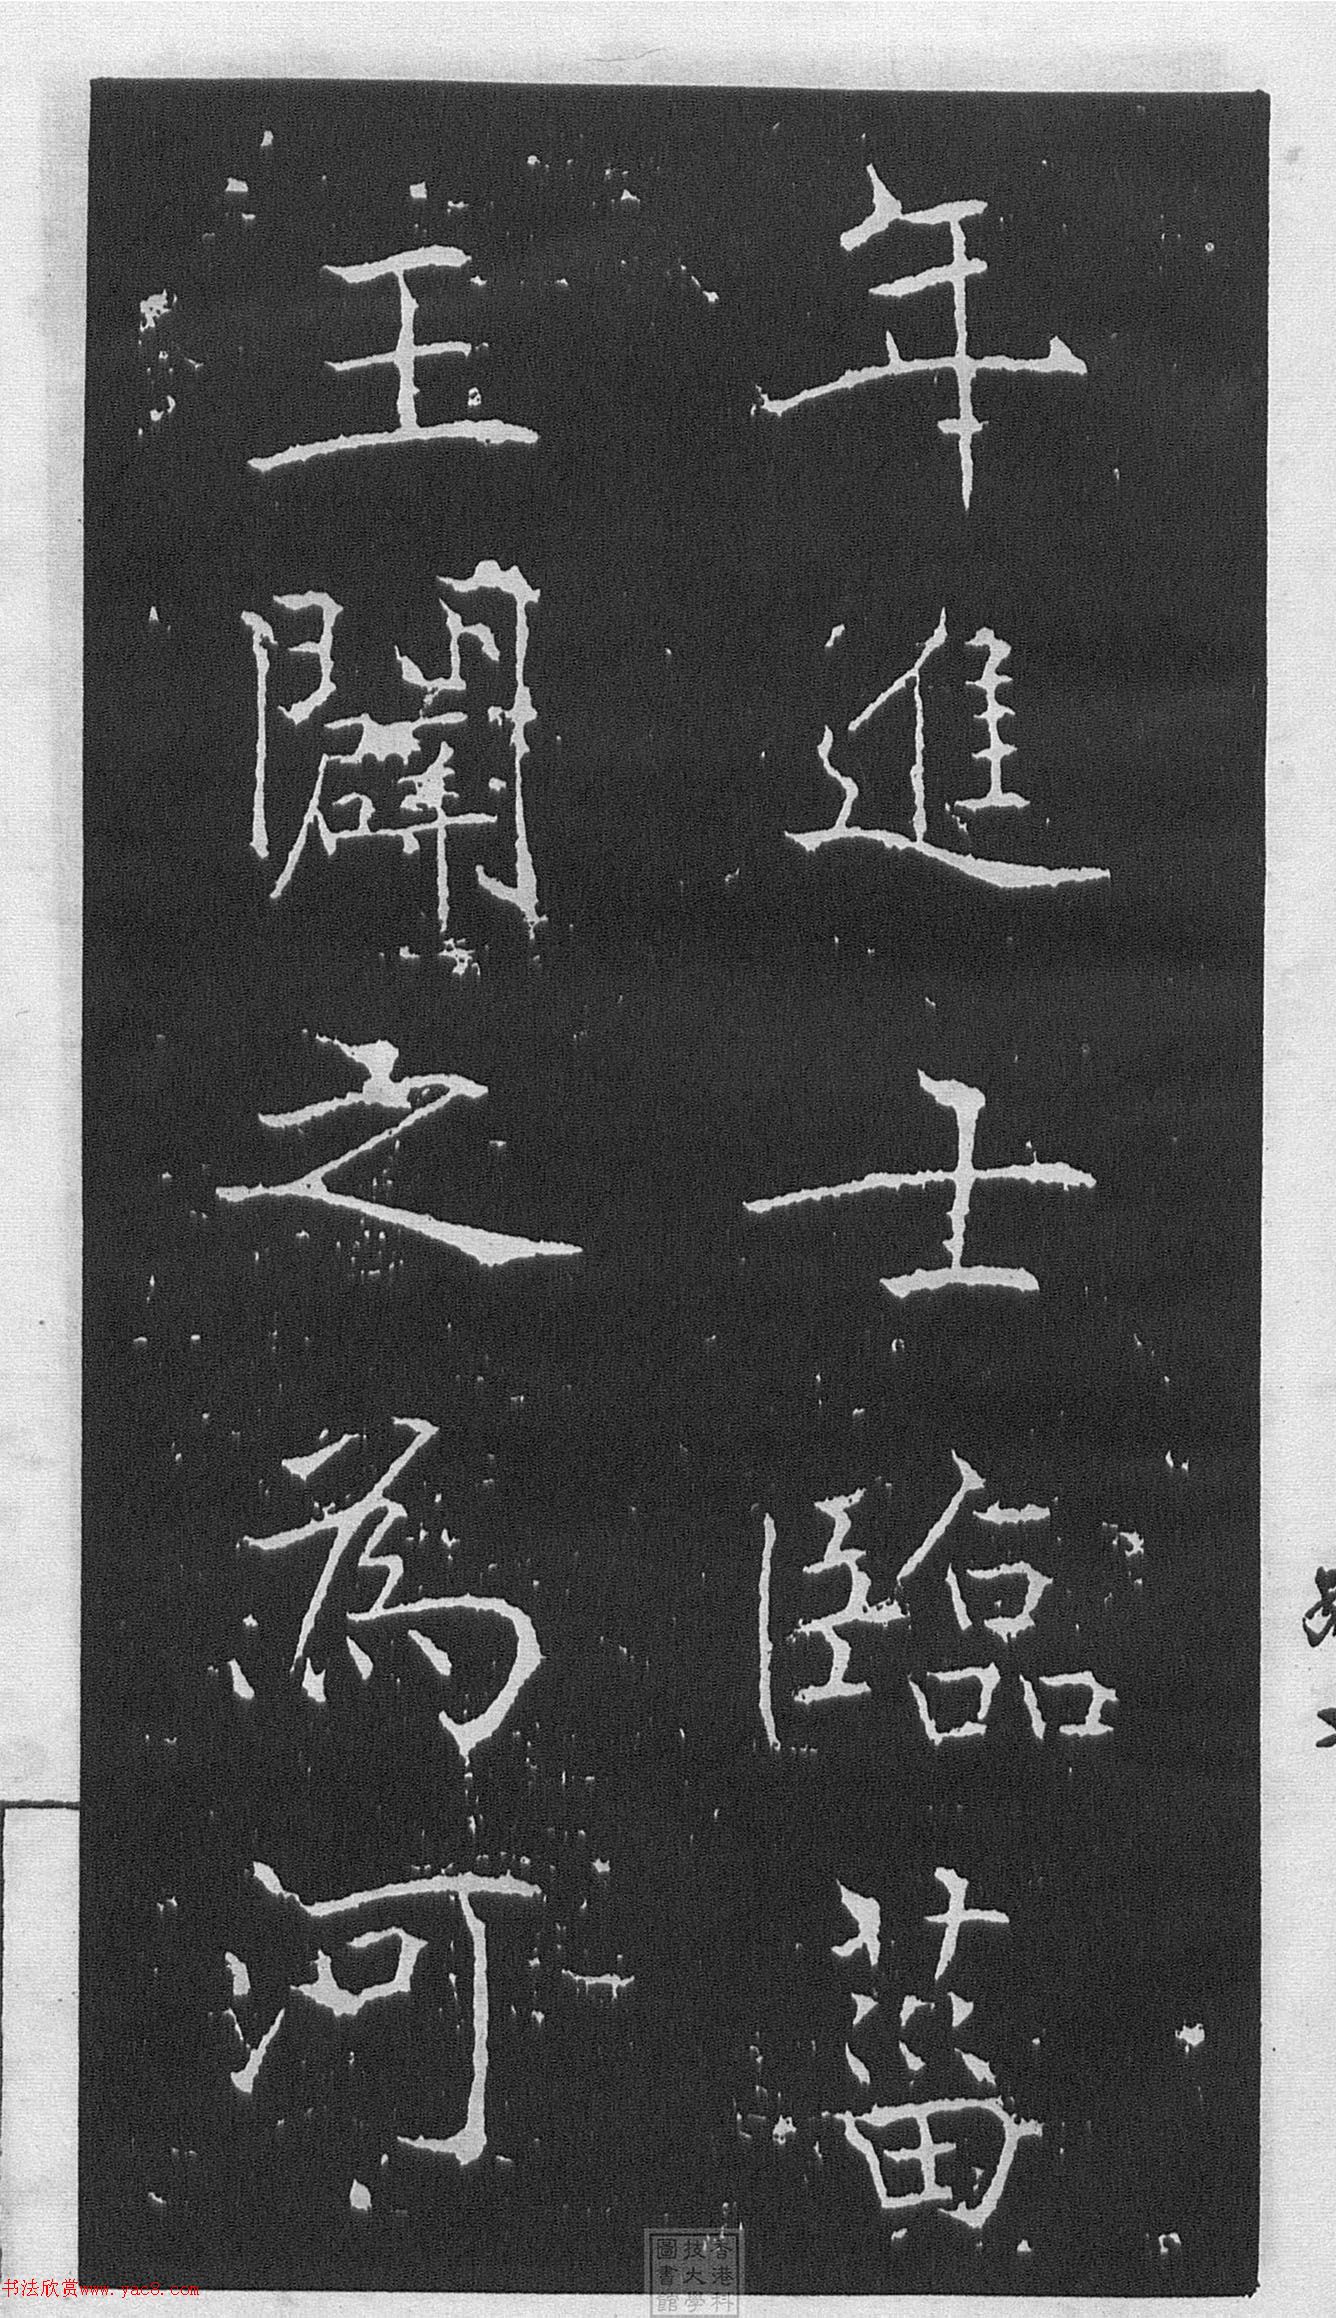 年進士臨菑
王闢之為河
香港科
技大學
圖書館
书法欣赏www.yac8.com